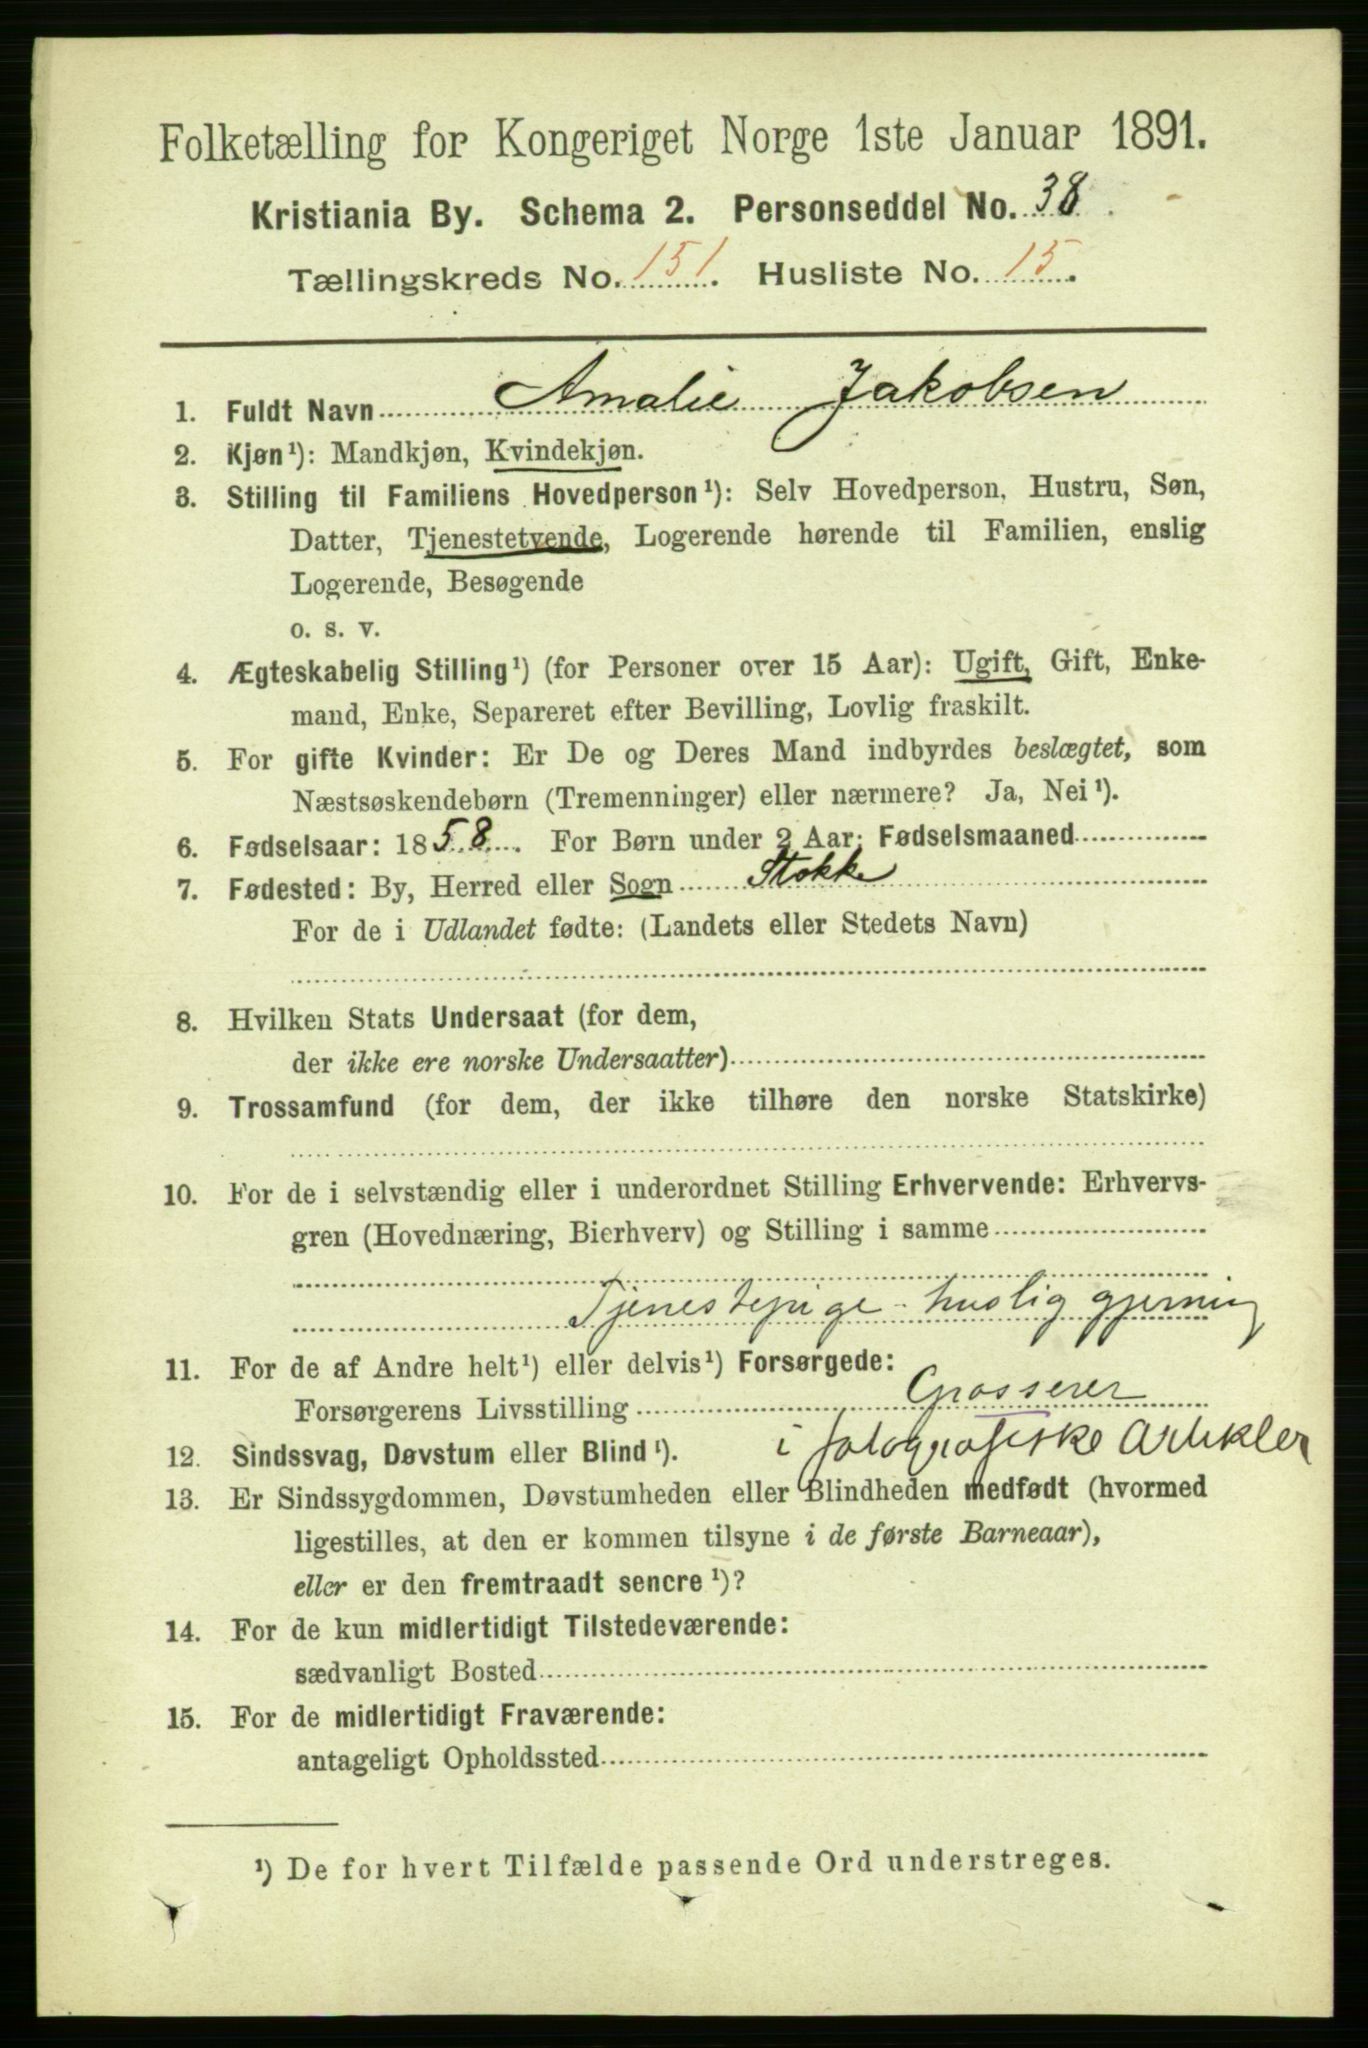 Folketælling for Kongeriget Norge 1ste Januar 1891.
Kristiania By. Schema 2. Personseddel No. 38.
Tællingskreds No. 151. Husliste No. 15.
1. Fuldt Navn Amalie Jakobsen
2. Kjøn¹): Mandkjøn, Kvindekjøn.
3. Stilling til Familiens Hovedperson¹): Selv Hovedperson, Hustru, Søn,
Datter, Tjenestetyende, Logerende hørende til Familien, enslig
Logerende, Besøgende
o. s. v.
4. Ægteskabelig Stilling¹) (for Personer over 15 Aar): Ugift, Gift, Enke-
mand, Enke, Separeret efter Bevilling, Lovlig fraskilt.
5. For gifte Kvinder: Er De og Deres Mand indbyrdes beslægtet, som
Næstsøskendebørn (Tremenninger) eller nærmere? Ja, Nei¹).
6. Fødselsaar: 1858. For Børn under 2 Aar: Fødselsmaaned
7. Fødested: By, Herred eller Sogn Stokke
For de i Udlandet fødte: (Landets eller Stedets Navn)
8. Hvilken Stats Undersaat (for dem,
der ikke ere norske Undersaatter)
9. Trossamfund (for dem, der ikke tilhøre den norske Statskirke)
10. For de i selvstændig eller i underordnet Stilling Erhvervende: Erhvervs-
gren (Hovednæring, Bierhverv) og Stilling i samme
Tjenestepige - huslig gjerning
11. For de af Andre helt¹) eller delvis¹) Forsørgede:
Forsørgerens Livsstilling Grosserer
12. Sindssvag, Døvstum eller Blind¹). i fotografiske Artikler
13. Er Sindssygdommen, Døvstumheden eller Blindheden medfødt (hvormed
ligestilles, at den er kommen tilsyne i de første Barneaar),
eller er den fremtraadt senere¹)?
14. For de kun midlertidigt Tilstedeværende:
sædvanligt Bosted
15. For de midlertidigt Fraværende:
antageligt Opholdssted
¹) De for hvert Tilfælde passende Ord understreges.